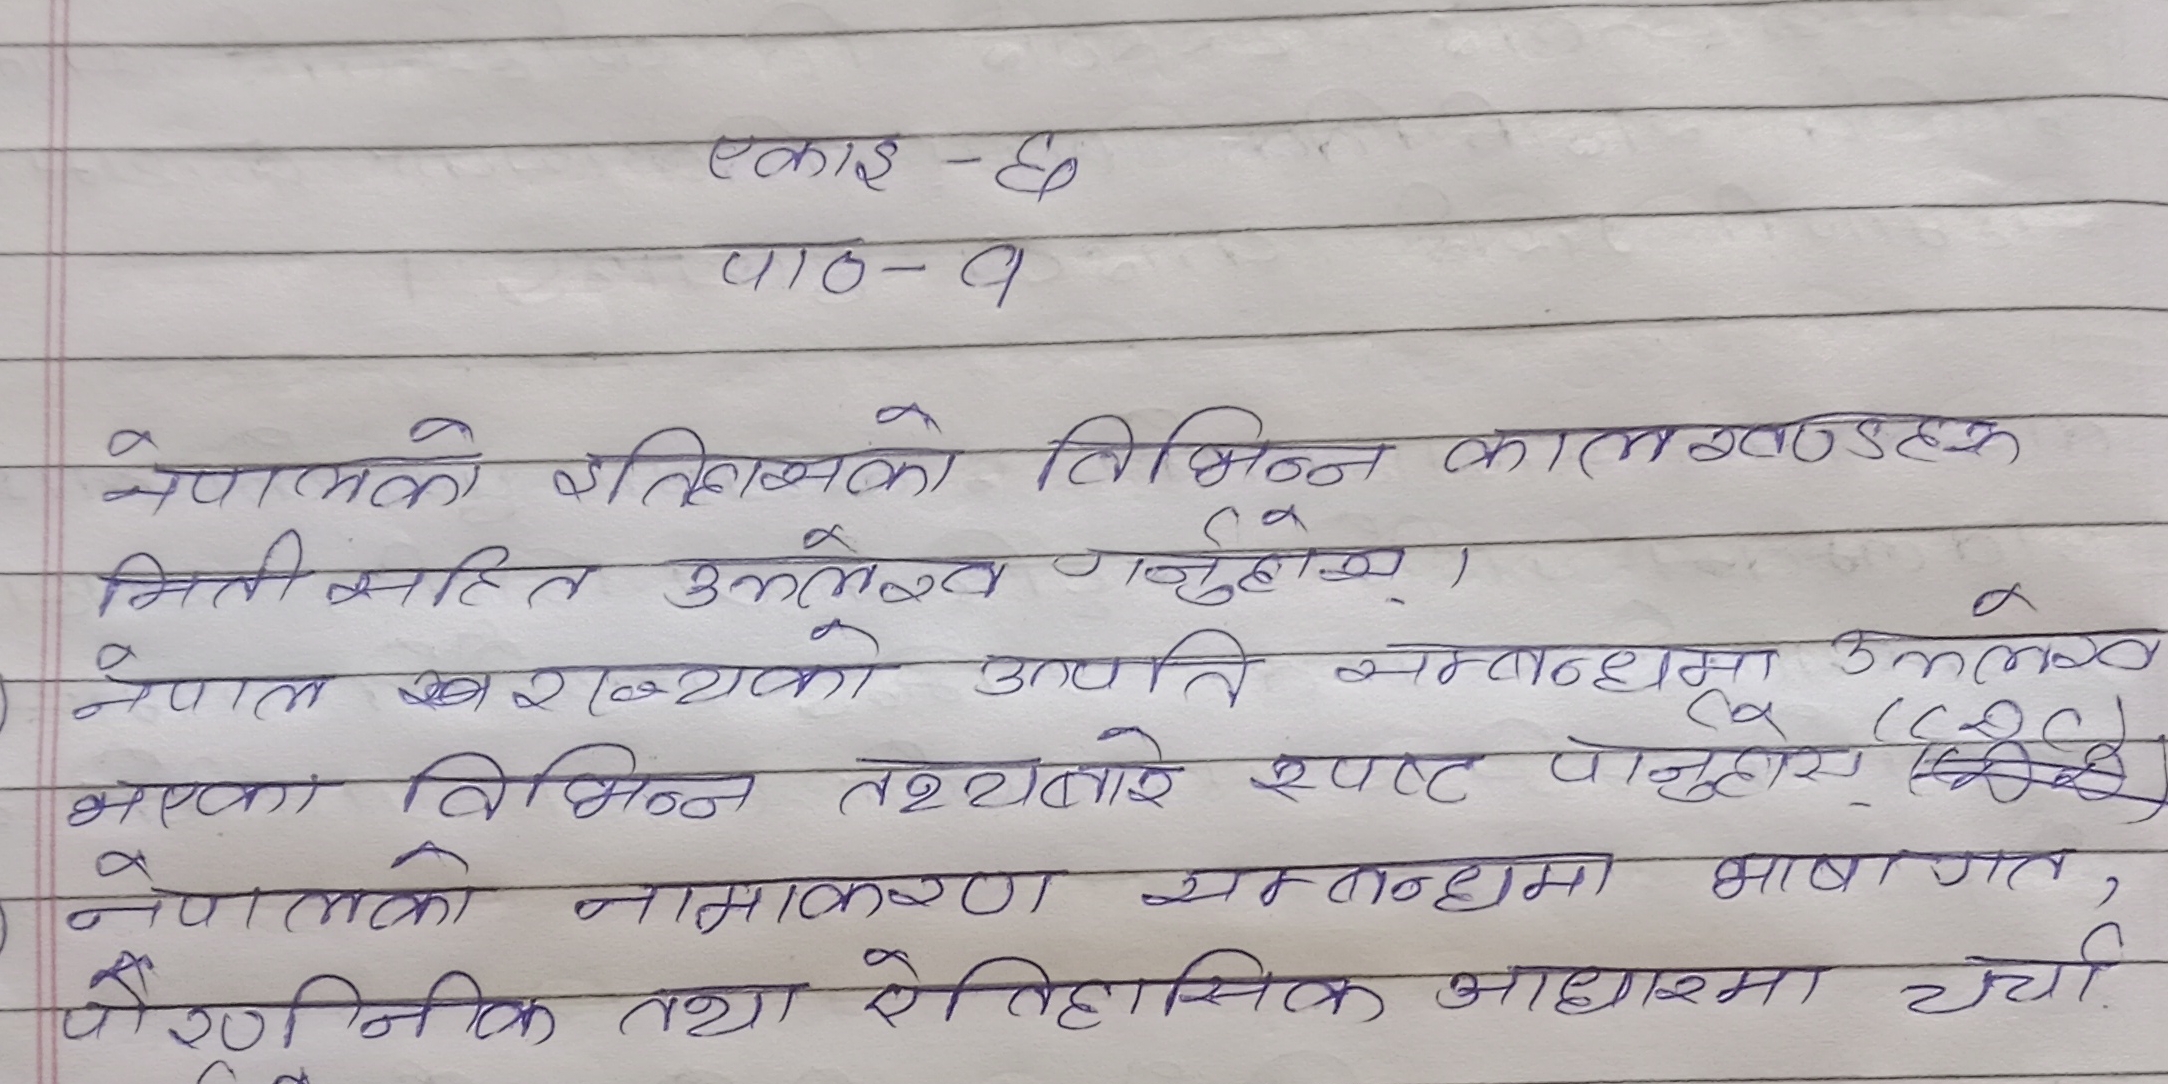 एकाइ - ६
पाठ - १
नेपालको इतिहासको विभिन्न कालखण्डहरू
मिती सहित उल्लेख गर्नुहोस् ।
नेपाल राज्यको उत्पति सम्बन्धमा उल्लेख
भएका विभिन्न तथ्यबारे स्पष्ट पार्नुहोस्
नेपालको नामाकरण सम्बन्धमा भाषागत,
पौरणिनीक तथा ऐतिहासिक आधारमा चर्चा